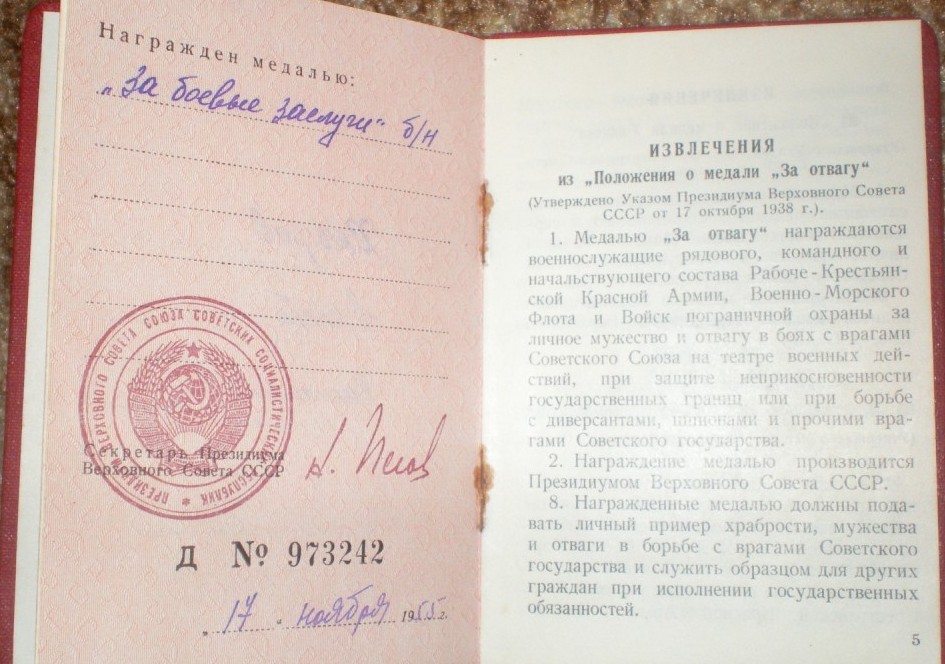 Награжден медалью:
„За боевые заслуги“ б/н
ПРЕЗИДИУМ ВЕРХОВНОГО СОВЕТА СОЮЗА СОВЕТСКИХ СОЦИАЛИСТИЧЕСКИХ РЕСПУБЛИК
Секретарь Президиума
Верховного Совета СССР
Д № 973242
„17“ ноября 1955 г.
ИЗВЛЕЧЕНИЯ
из „Положения о медали „За отвагу“
(Утверждено Указом Президиума Верховного Совета
СССР от 17 октября 1938 г.).
1. Медалью „За отвагу“ награждаются
военнослужащие рядового, командного и
начальствующего состава Рабоче-Крестьян-
ской Красной Армии, Военно-Морского
Флота и Войск пограничной охраны за
личное мужество и отвагу в боях с врагами
Советского Союза на театре военных дей-
ствий, при защите неприкосновенности
государственных границ или при борьбе
с диверсантами, шпионами и прочими вра-
гами Советского государства.
2. Награждение медалью производится
Президиумом Верховного Совета СССР.
8. Награжденные медалью должны пода-
вать личный пример храбрости, мужества
и отваги в борьбе с врагами Советского
государства и служить образцом для других
граждан при исполнении государственных
обязанностей.
5